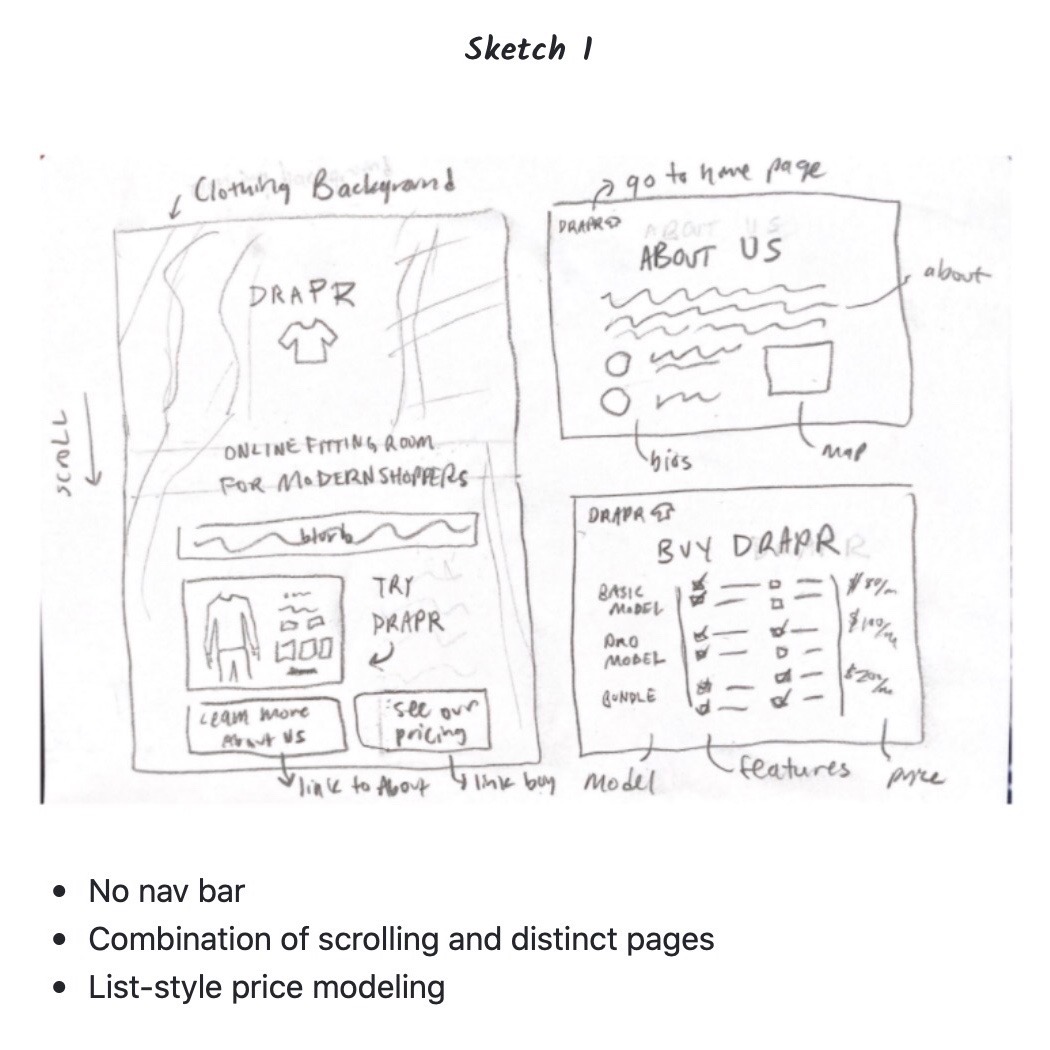 Sketch 1
Clothing Background
DRAPR
SCROLL
ONLINE FITTING ROOM
FOR MODERN SHOPPERS
blurb
TRY
DRAPR
Learn more
About US
see our
pricing
link to About
link buy
go to home page
DRAPR
ABOUT US
about
bios
map
DRAPR
BUY DRAPR
BASIC
MODEL
PRO
MODEL
BUNDLE
Model
features
price
• No nav bar
• Combination of scrolling and distinct pages
• List-style price modeling